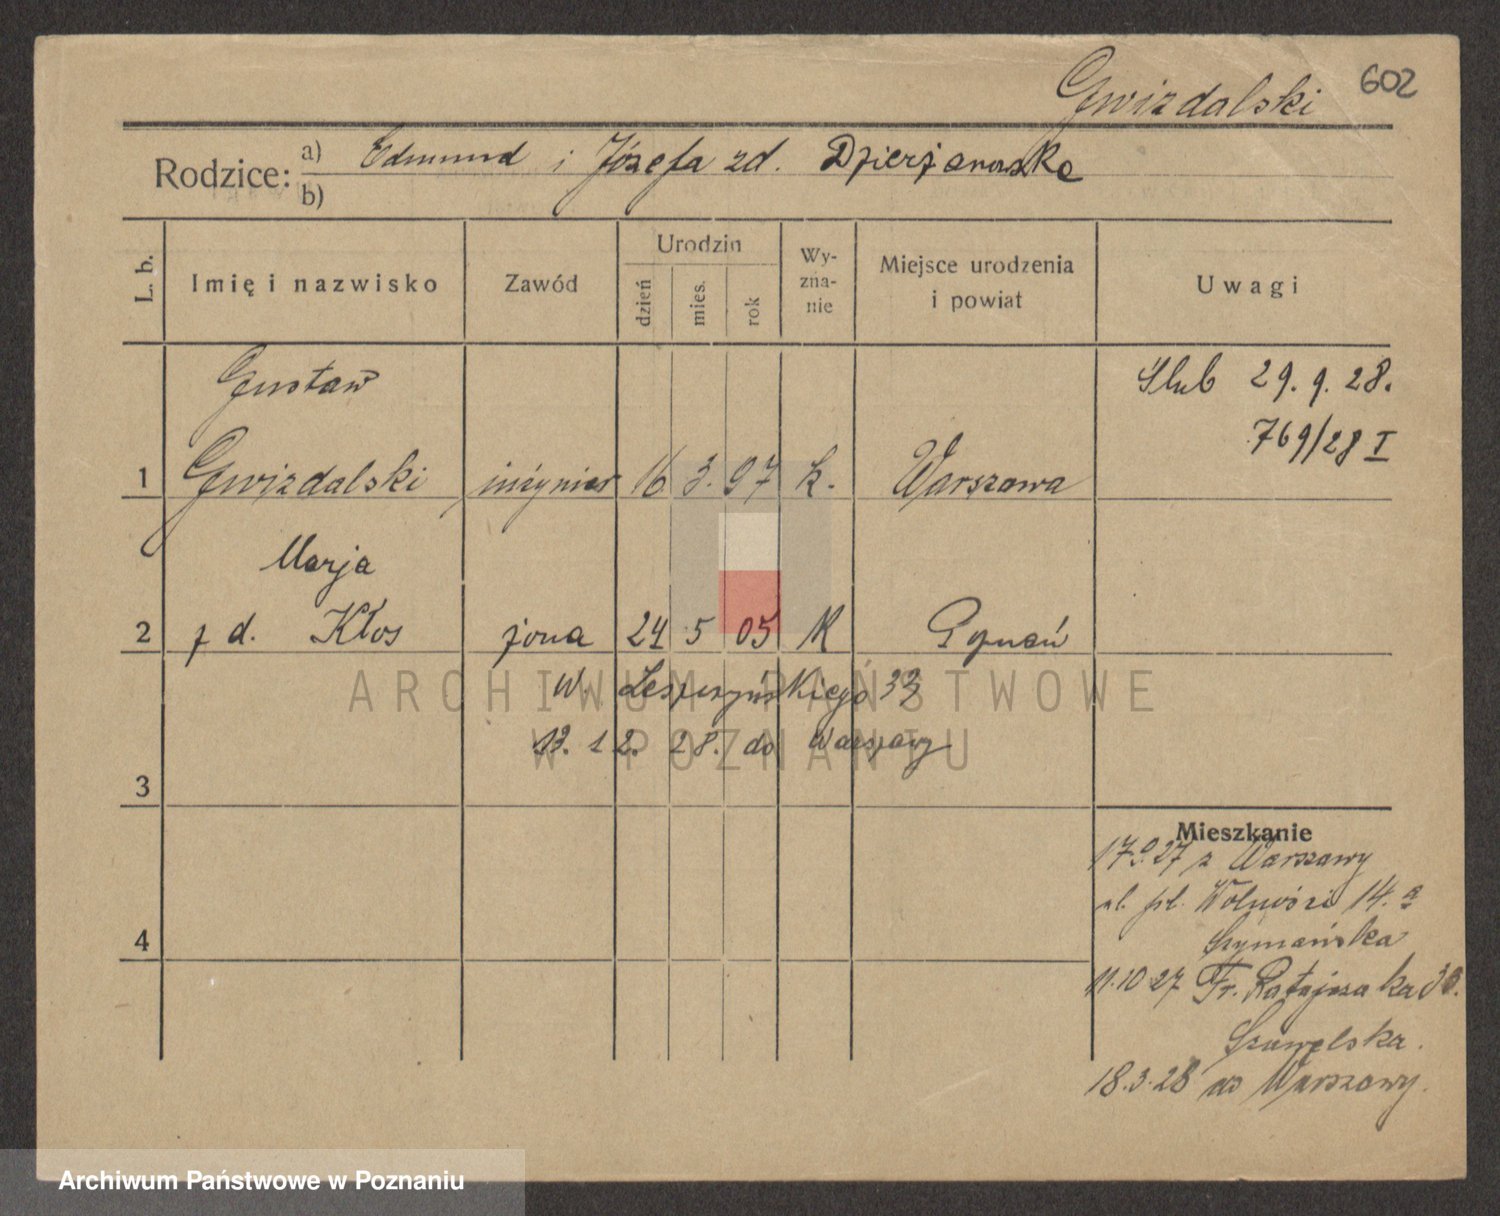 Gwizdalski 602
Rodzice: a) Edmund i Józefa zd. Dzierżanowska
b)
L. b.
Imię i nazwisko
Zawód
Urodzin
dzień
mies.
rok
Wy-
zna-
nie
Miejsce urodzenia
i powiat
Uwagi
Gustaw
Ślub 29. 9. 28.
769/28 I
1 Gwizdalski inżynier 16 3. 97 k. Warszawa
Marja
2 z d. Kłos żona 24 5 05 K Poznań
W. Leszczyńskiego 33
13. 12. 28. do Warszawy
3
4
Mieszkanie
17.9.27 z Warszawy
ul. pl. Wolności 14.a
Szymańska
11.10 27 Fr. Ratajczaka 38.
18.3.28 do Warszawy.
ARCHIWUM PAŃSTWOWE
W POZNANIU
Archiwum Państwowe w Poznaniu